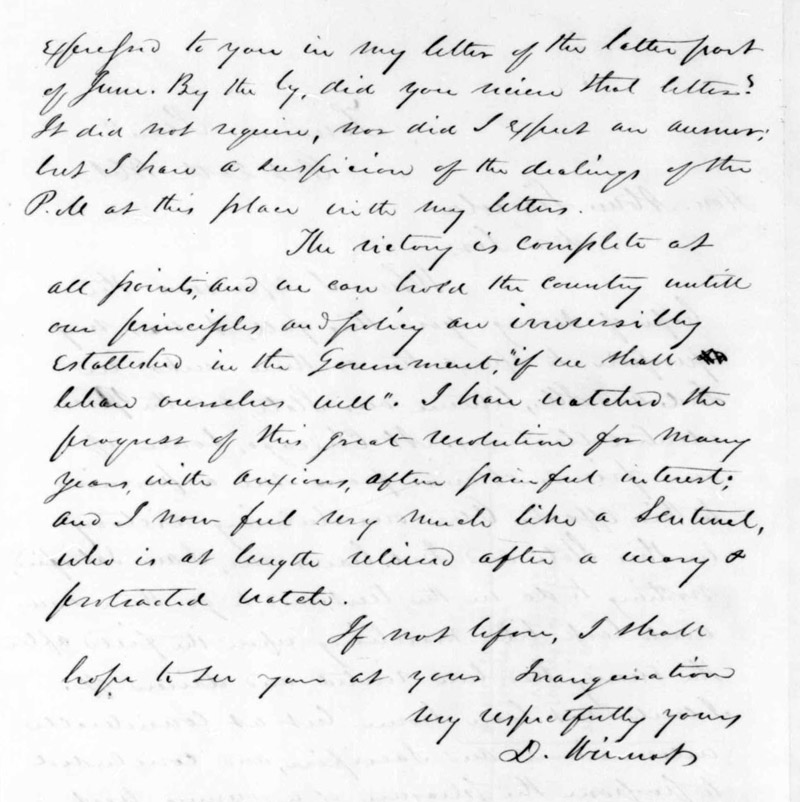 expressed to you in my letter of the latter part
of June. By the by, did you recieve that letter?
It did not require, nor did I expect an answer;
but I have a suspicion of the dealings of the
P.M at this place with my letters.
The victory is complete at
all points, and we can hold the country untill
our principles and policy are irreversibly
established in the Government, "if we shall
behave ourselves well". I have watched the
progress of this great revolution for many
years, with anxious, often painful interest;
and I now feel very much like a Sentinel,
who is at length relieved after a weary &
protracted watch.
If not before, I shall
hope to see you at your Inauguration
Very respectfully yours
D. Wilmot